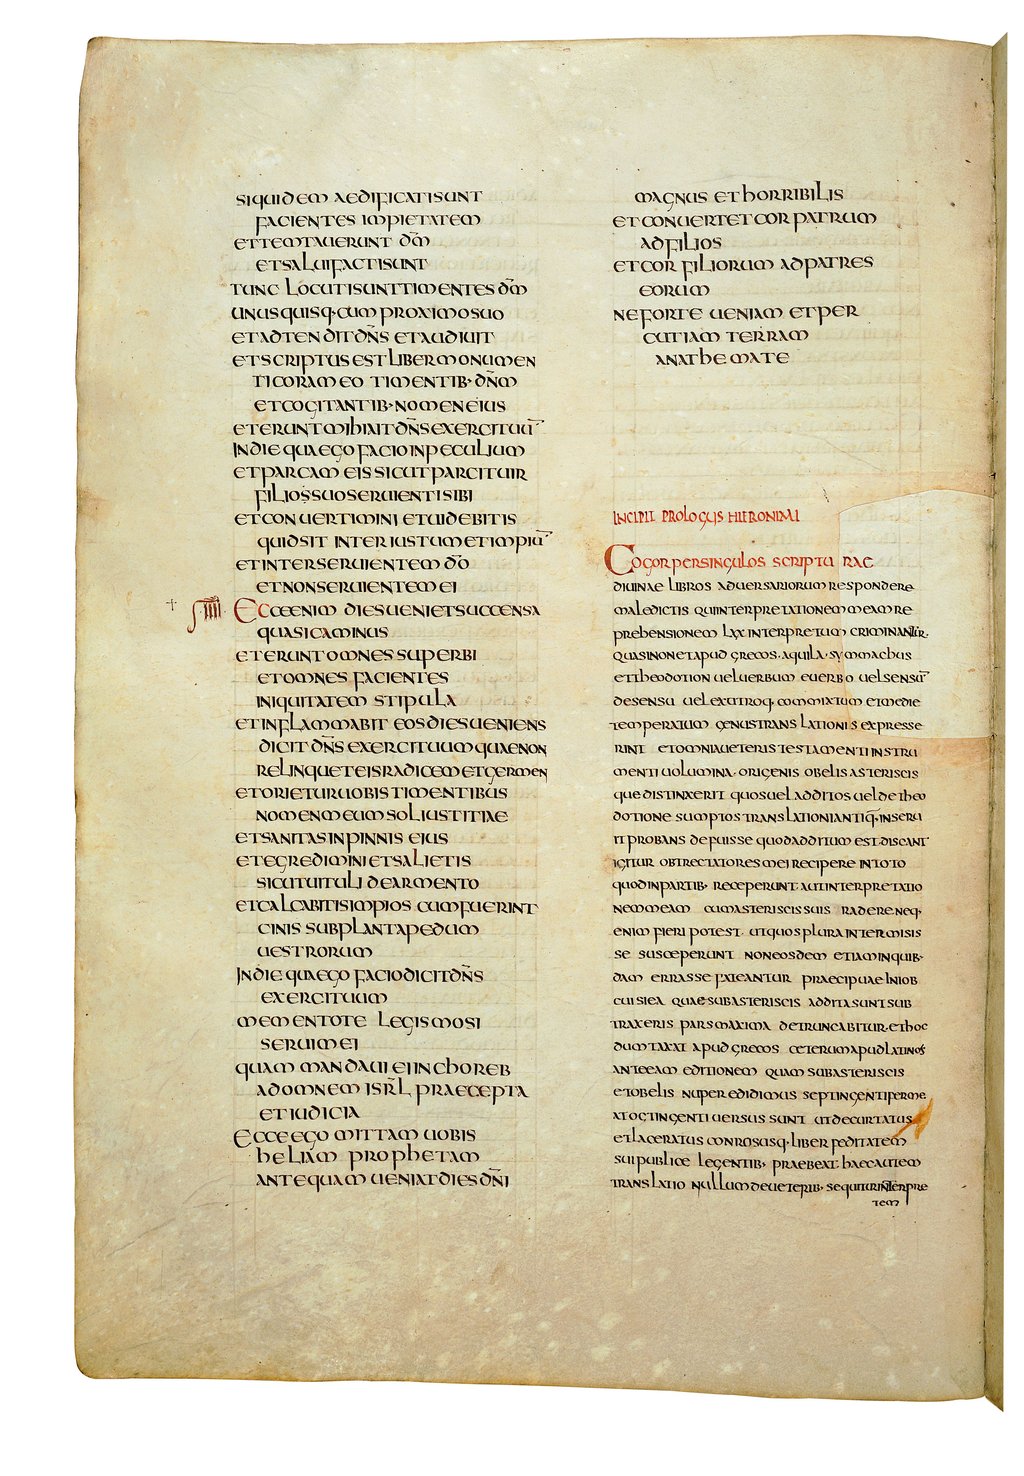 siquidem aedificati sunt
facientes impietatem
et temtauerunt dm̄
et salui facti sunt
tunc locuti sunt timentes dm̄
unusquisq· cum proximo suo
et adtendit dn̄s et audiuit
et scriptus est liber monumen
ti coram eo timentib· dn̄m
et cogitantib· nomen eius
et erunt mihi ait dn̄s exercituū
in die qua ego facio in peculium
et parcam eis sicut parcit uir
filio suo seruienti sibi
et conuertimini et uidebitis
quid sit inter iustum et impiū
et inter seruientem dō
et non seruientem ei
IIII Ecce enim dies ueniet succensa
quasi caminus
et erunt omnes superbi
et omnes facientes
iniquitatem stipula
et inflammabit eos dies ueniens
dicit dn̄s exercituum quae non
relinquet eis radicem et germen
et orietur uobis timentibus
nomen meum sol iustitiae
et sanitas in pinnis eius
et egredimini et salietis
sicut uituli de armento
et calcabitis impios cum fuerint
cinis sub planta pedum
uestrorum
in die qua ego facio dicit dn̄s
exercituum
mementote legis mosi
serui mei
quam mandaui ei in choreb
ad omnem isrl̄ praecepta
et iudicia
ecce ego mittam uobis
heliam prophetam
antequam ueniat dies dn̄i
magnus et horribilis
et conuertet cor patrum
ad filios
et cor filiorum ad patres
eorum
ne forte ueniam et per
cutiam terram
anathemate
INCIPIT PROLOGUS HIERONIMI
Cogor per singulos scripturae
diuinae libros aduersariorum respondere
maledictis qui interpretationem meam re
prehensionem lxx interpretum criminantur·
quasi non et apud grecos· aquila· symmachus
et theodotion uel uerbum e uerbo uel sensū
de sensu uel ex utroq· commixtum et medie
temperatum genus translationis expresse
rint et omnia ueteris testamenti instru
menti uolumina· origenis obelis asteriscis
que distinxerit quos uel additos uel de theo
dotione sumptos translationi antiq· inseru
it probans defuisse quod additum est· discant
igitur obtrectatores mei recipere in toto
quod in partib· receperunt· aut interpretatio
nem meam cum asteriscis suis radere· neq·
enim fieri potest· ut quos plura intermisis
se susceperunt non eosdem etiam in quib·
dam errasse fateantur praecipuae in iob
cui si ea quae sub asteriscis addita sunt sub
traxeris pars maxima detruncabitur· et hoc
dumtaxat apud grecos ceterum apud latinos
anteeam editionem quam sub asteriscis
et obelis nuper edidimus septingenti ferme
at octingenti uersus sunt ut decurtatus
et laceratus conrosusq· liber feditatem
sui publice legentib· praebeat· haec autem
translatio nullum de ueterib· sequitur interpre
tem